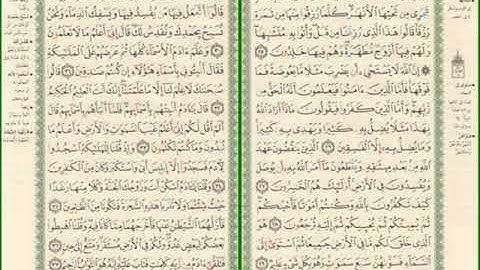 تَجْرِى مِن تَحْتِهَا ٱلْأَنْهَٰرُ كُلَّمَا رُزِقُوا۟ مِنْهَا مِن ثَمَرَةٍ
رِّزْقًا قَالُوا۟ هَٰذَا ٱلَّذِى رُزِقْنَا مِن قَبْلُ وَأُتُوا۟ بِهِۦ مُتَشَٰبِهًا
وَلَهُمْ فِيهَآ أَزْوَٰجٌ مُّطَهَّرَةٌ وَهُمْ فِيهَا خَٰلِدُونَ ٢٥
إِنَّ ٱللَّهَ لَا يَسْتَحْىِۦٓ أَن يَضْرِبَ مَثَلًا مَّا بَعُوضَةً فَمَا
فَوْقَهَا فَأَمَّا ٱلَّذِينَ ءَامَنُوا۟ فَيَعْلَمُونَ أَنَّهُ ٱلْحَقُّ مِن
رَّبِّهِمْ وَأَمَّا ٱلَّذِينَ كَفَرُوا۟ فَيَقُولُونَ مَاذَآ أَرَادَ ٱللَّهُ
بِهَٰذَا مَثَلًا يُضِلُّ بِهِۦ كَثِيرًا وَيَهْدِى بِهِۦ كَثِيرًا
وَمَا يُضِلُّ بِهِۦٓ إِلَّا ٱلْفَٰسِقِينَ ٢٦ ٱلَّذِينَ يَنقُضُونَ عَهْدَ
ٱللَّهِ مِنۢ بَعْدِ مِيثَٰقِهِۦ وَيَقْطَعُونَ مَآ أَمَرَ ٱللَّهُ بِهِۦٓ أَن يُوصَلَ
وَيُفْسِدُونَ فِى ٱلْأَرْضِ أُو۟لَٰٓئِكَ هُمُ ٱلْخَٰسِرُونَ ٢٧
كَيْفَ تَكْفُرُونَ بِٱللَّهِ وَكُنتُمْ أَمْوَٰتًا فَأَحْيَٰكُمْ
ثُمَّ يُمِيتُكُمْ ثُمَّ يُحْيِيكُمْ ثُمَّ إِلَيْهِ تُرْجَعُونَ ٢٨ هُوَ
ٱلَّذِى خَلَقَ لَكُم مَّا فِى ٱلْأَرْضِ جَمِيعًا ثُمَّ ٱسْتَوَىٰٓ إِلَى
ٱلسَّمَآءِ فَسَوَّىٰهُنَّ سَبْعَ سَمَٰوَٰتٍ وَهُوَ بِكُلِّ شَىْءٍ عَلِيمٌ ٢٩
قَالُوٓا۟ أَتَجْعَلُ فِيهَا مَن يُفْسِدُ فِيهَا وَيَسْفِكُ ٱلدِّمَآءَ وَنَحْنُ
نُسَبِّحُ بِحَمْدِكَ وَنُقَدِّسُ لَكَ قَالَ إِنِّىٓ أَعْلَمُ مَا لَا تَعْلَمُونَ
٣٠ وَعَلَّمَ ءَادَمَ ٱلْأَسْمَآءَ كُلَّهَا ثُمَّ عَرَضَهُمْ عَلَى ٱلْمَلَٰٓئِكَةِ
فَقَالَ أَنۢبِـُٔونِى بِأَسْمَآءِ هَٰٓؤُلَآءِ إِن كُنتُمْ صَٰدِقِينَ ٣١
قَالُوا۟ سُبْحَٰنَكَ لَا عِلْمَ لَنَآ إِلَّا مَا عَلَّمْتَنَآ إِنَّكَ أَنتَ ٱلْعَلِيمُ ٱلْحَكِيمُ
٣٢ قَالَ يَٰٓـَٔادَمُ أَنۢبِئْهُم بِأَسْمَآئِهِمْ فَلَمَّآ أَنۢبَأَهُم بِأَسْمَآئِهِمْ قَالَ
أَلَمْ أَقُل لَّكُمْ إِنِّىٓ أَعْلَمُ غَيْبَ ٱلسَّمَٰوَٰتِ وَٱلْأَرْضِ وَأَعْلَمُ مَا
تُبْدُونَ وَمَا كُنتُمْ تَكْتُمُونَ ٣٣ وَإِذْ قُلْنَا لِلْمَلَٰٓئِكَةِ ٱسْجُدُوا۟
لِـَٔادَمَ فَسَجَدُوٓا۟ إِلَّآ إِبْلِيسَ أَبَىٰ وَٱسْتَكْبَرَ وَكَانَ مِنَ ٱلْكَٰفِرِينَ
٣٤ وَقُلْنَا يَٰٓـَٔادَمُ ٱسْكُنْ أَنتَ وَزَوْجُكَ ٱلْجَنَّةَ وَكُلَا مِنْهَا رَغَدًا
حَيْثُ شِئْتُمَا وَلَا تَقْرَبَا هَٰذِهِ ٱلشَّجَرَةَ فَتَكُونَا مِنَ ٱلظَّٰلِمِينَ ٣٥
فَأَزَلَّهُمَا ٱلشَّيْطَٰنُ عَنْهَا فَأَخْرَجَهُمَا مِمَّا كَانَا فِيهِ وَقُلْنَا ٱهْبِطُوا۟
بَعْضُكُمْ لِبَعْضٍ عَدُوٌّ وَلَكُمْ فِى ٱلْأَرْضِ مُسْتَقَرٌّ وَمَتَٰعٌ إِلَىٰ حِينٍ
٣٦ فَتَلَقَّىٰٓ ءَادَمُ مِن رَّبِّهِۦ كَلِمَٰتٍ فَتَابَ عَلَيْهِ إِنَّهُۥ هُوَ ٱلتَّوَّابُ ٱلرَّحِيمُ